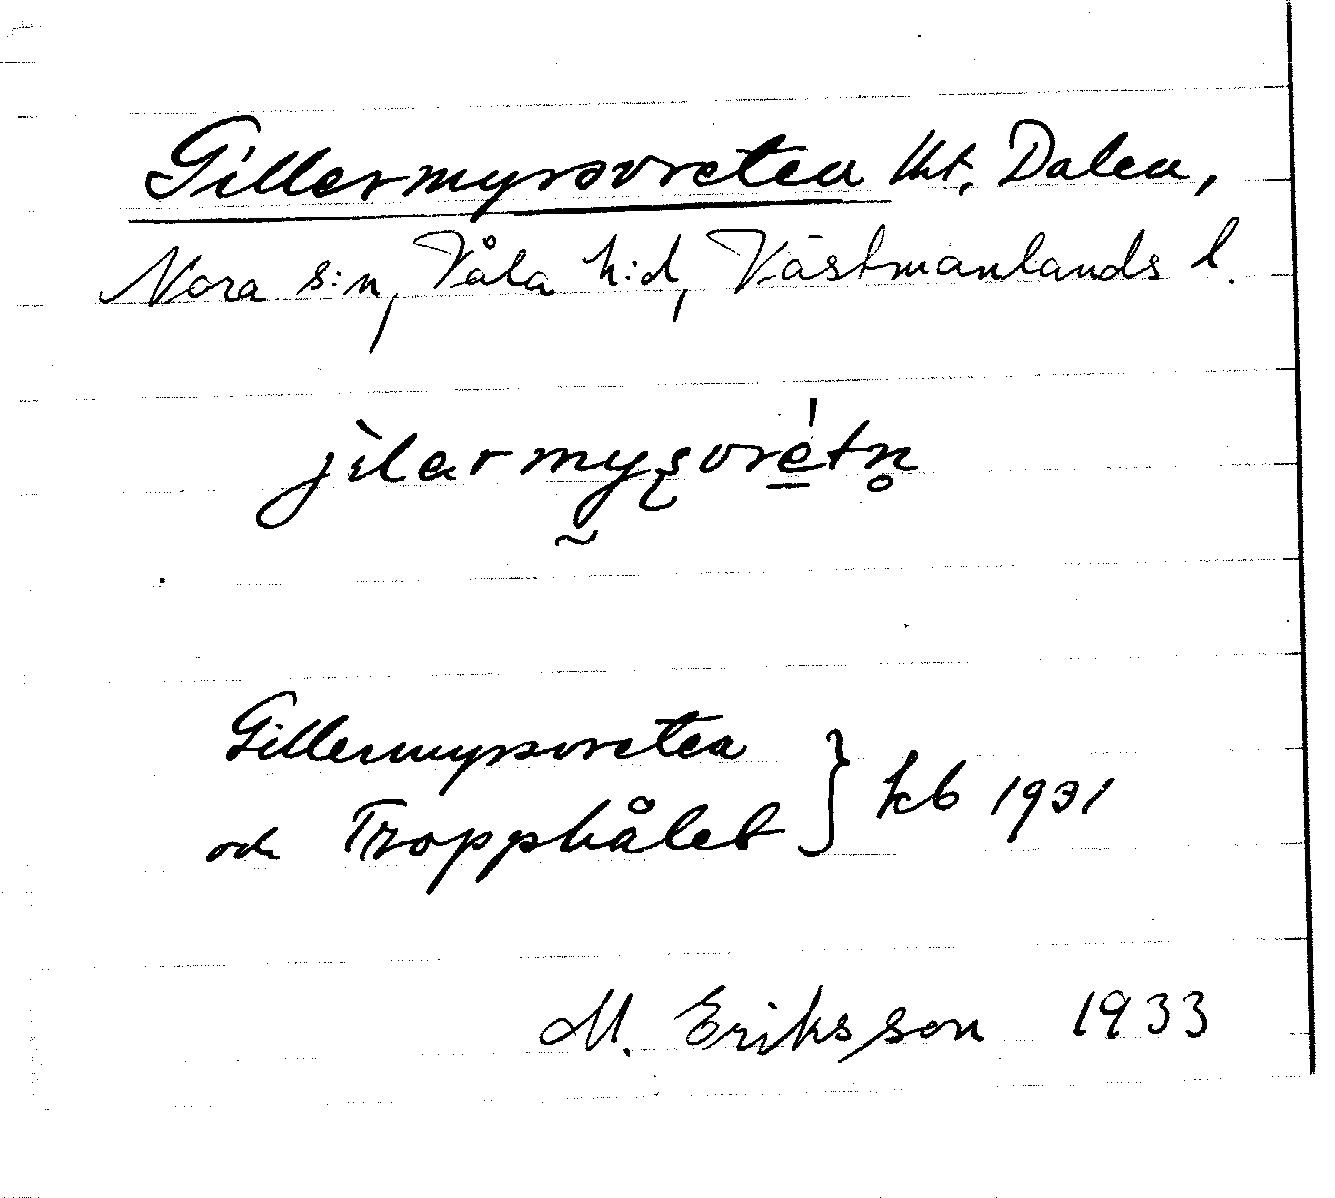 Gillermyrsvreten lht, Dalen,
Nora s:n, Våla h:d, Västmanlands l.
jìlarmyʂvrétn̥
Gillermyrsvreten
och Tropphålet } kb 1931
M. Eriksson 1933